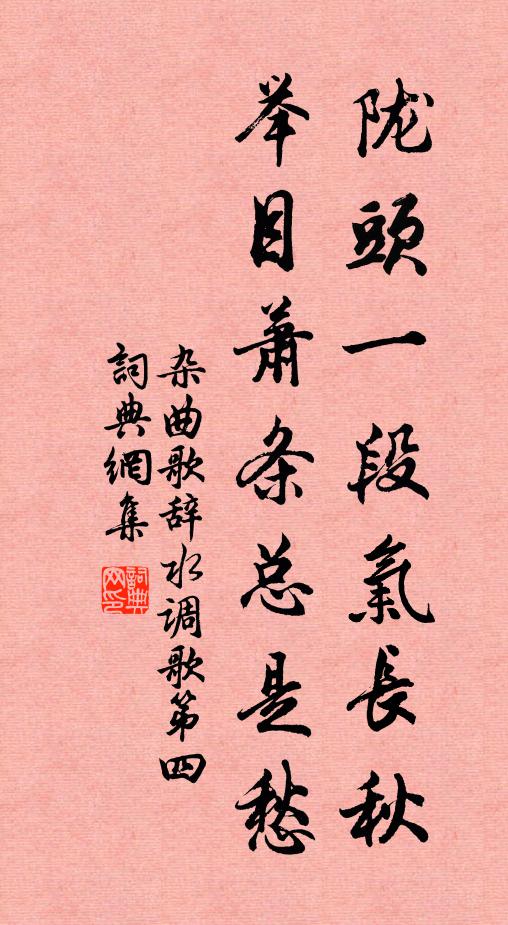 陇頭一段氣長秋
举目蕭条总是愁
杂曲歌辞水调歌第四
詞典網集
詞典
网印